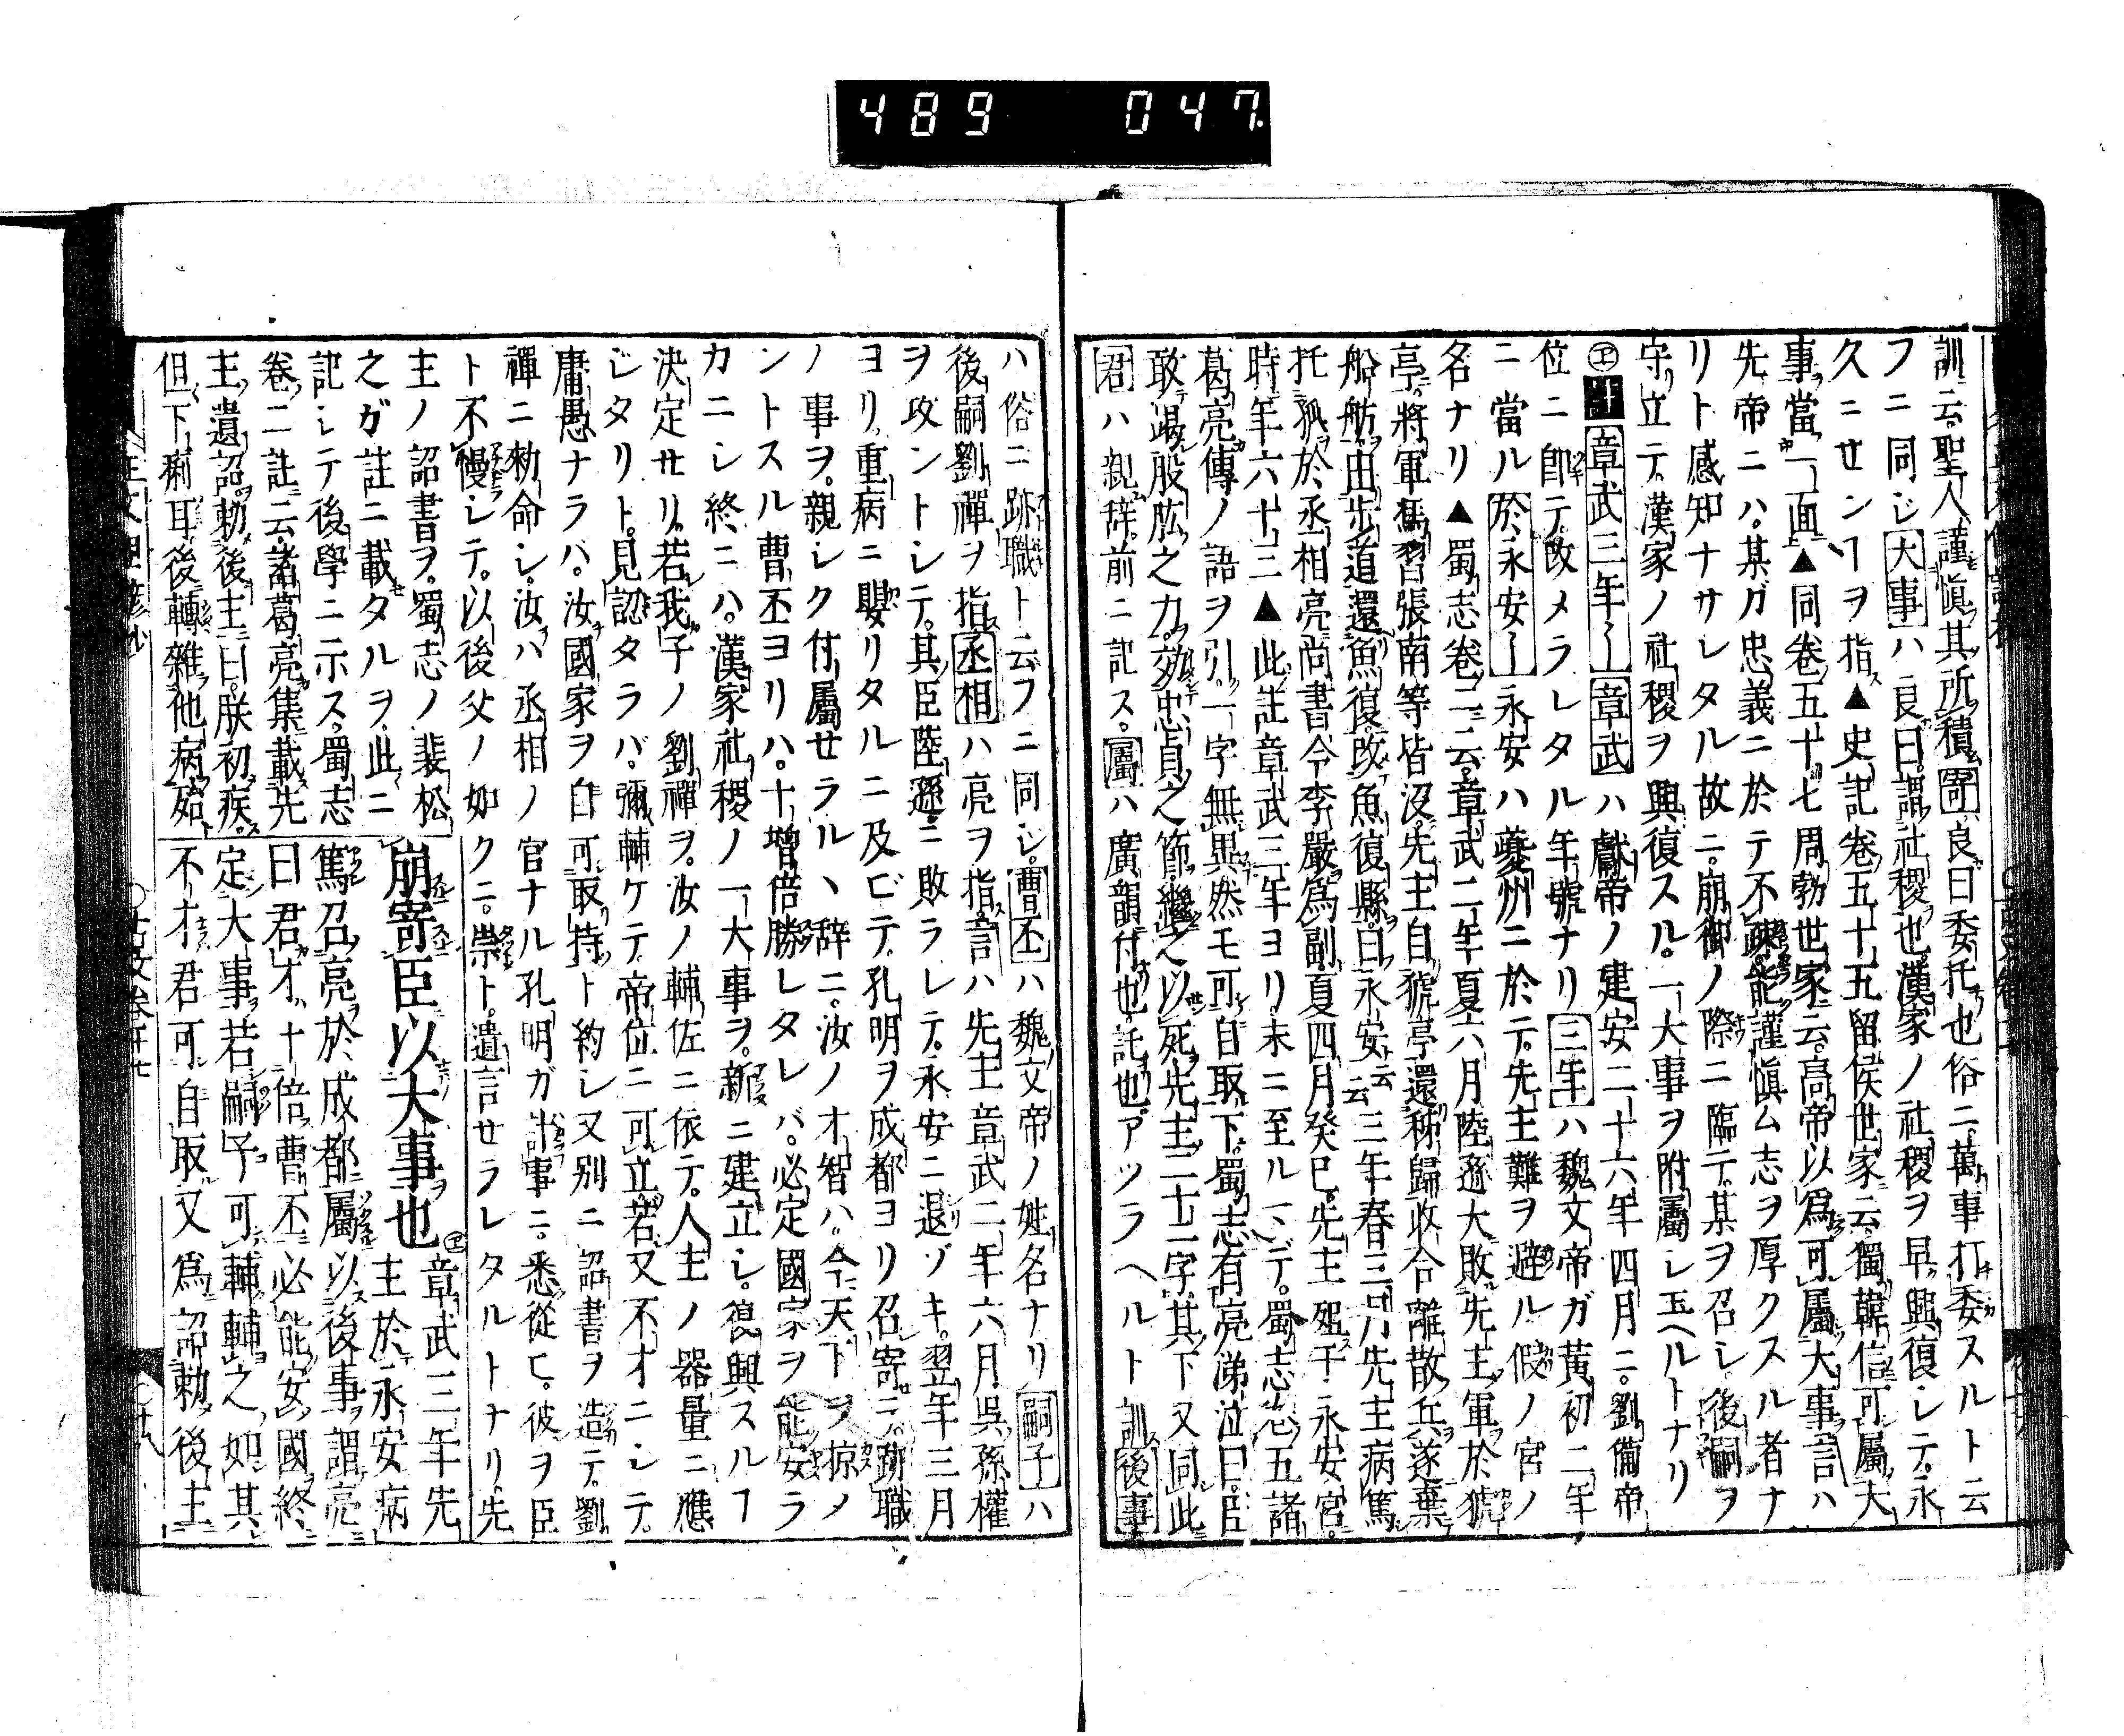 489 047.
訓云聖人謹慎其所積寄良曰委托也俗ニ萬事打委スルト云
フニ同シ大事ハ良曰謂社稷也漢家ノ社稷ヲ早興復シテ永
久ニセンヿヲ指▲史記卷五十五留侯世家云獨韓信可屬大
事當一面▲同卷五十七周勃世家云高帝以爲可屬大事言ハ
先帝ニハ某ガ忠義ニ於テ不疎能謹慎ム志ヲ厚クスル者ナ
リト感知ナサレタル故ニ崩御ノ際ニ臨テ某ヲ召シ後嗣ヲ
守立テ漢家ノ社稷ヲ興復スル一大事ヲ附屬シ玉ヘルトナリ
章武三年〱章武ハ獻帝ノ建安二十六年四月ニ劉備帝
位ニ即テ改メラレタル年號ナリ三年ハ魏文帝ガ黄初二年
ニ當ル於永安〱永安ハ夔州ニ於テ先主難ヲ避ル假ノ宮ノ
名ナリ▲蜀志卷二云章武二年夏六月陸遜大敗先主軍於猇
亭將軍馮習張南等皆沒先主自猇亭還秭歸收合離散兵遂棄
船舫由歩道還魚復改魚復縣曰永安云云三年春三月先主病篤
托孤於丞相亮尚書令李嚴爲副夏四月癸巳先主殂于永安宮
時年六十三▲此註章武三年ヨリ末ニ至ルヽデ蜀志五諸
葛亮傳ノ語ヲ引一字無異然モ可自取下蜀志有亮涕泣曰臣
敢竭股肱之力効忠貞之節繼之以死先主二十一字其下又同此
君ハ親辞前ニ記ス屬ハ廣韻付也託也アツラヘルト訓後事
ハ俗ニ跡職ト云フニ同シ曹丕ハ魏文帝ノ姓名ナリ嗣子ハ
後嗣劉禪ヲ指丞相ハ亮ヲ指言ハ先主章武二年六月呉孫權
ヲ攻ントシテ其臣陸遜ニ敗ラレテ永安ニ退ゾキ翌年三月
ヨリ重病ニ嬰リタルニ及ビテ孔明ヲ成都ヨリ召寄テ跡職
ノ事ヲ親シク付屬セラルヽ辞ニ汝ノ才智ハ今天下ヲ掠メ
ントスル曹丕ヨリハ十増倍勝レタレバ必定國家ヲ能安ラ
カニシ終ニハ漢家社稷ノ一大事ヲ新ニ建立シ復興スルヿ
決定セリ若我子ノ劉禪ヲ汝ノ輔佐ニ依テ人主ノ器量ニ應
シタリト見認タラバ彌輔ケテ帝位ニ可立若又不才ニシテ
庸愚ナラバ汝國家ヲ自可取持ト約シ又別ニ詔書ヲ造テ劉
禪ニ勅命シ汝ハ丞相ノ官ナル孔明ガ計事ニ悉從ヒ彼ヲ臣
ト不慢シテ以後父ノ如クニ崇ト遺言セラレタルトナリ先
主ノ詔書ヲ蜀志ノ裴松
之ガ註ニ載タルヲ此ニ
記シテ後學ニ示ス蜀志
卷二註云諸葛亮集載先
主遺詔勅後主曰朕初疾
但下痢耳後轉雜他病殆
崩寄臣以大事也
章武三年先
主於永安病
篤召亮於成都屬以後事謂亮
曰君才十倍曹丕必能安國終
定大事若嗣子可輔輔之如其
不才君可自取又爲詔勅後主